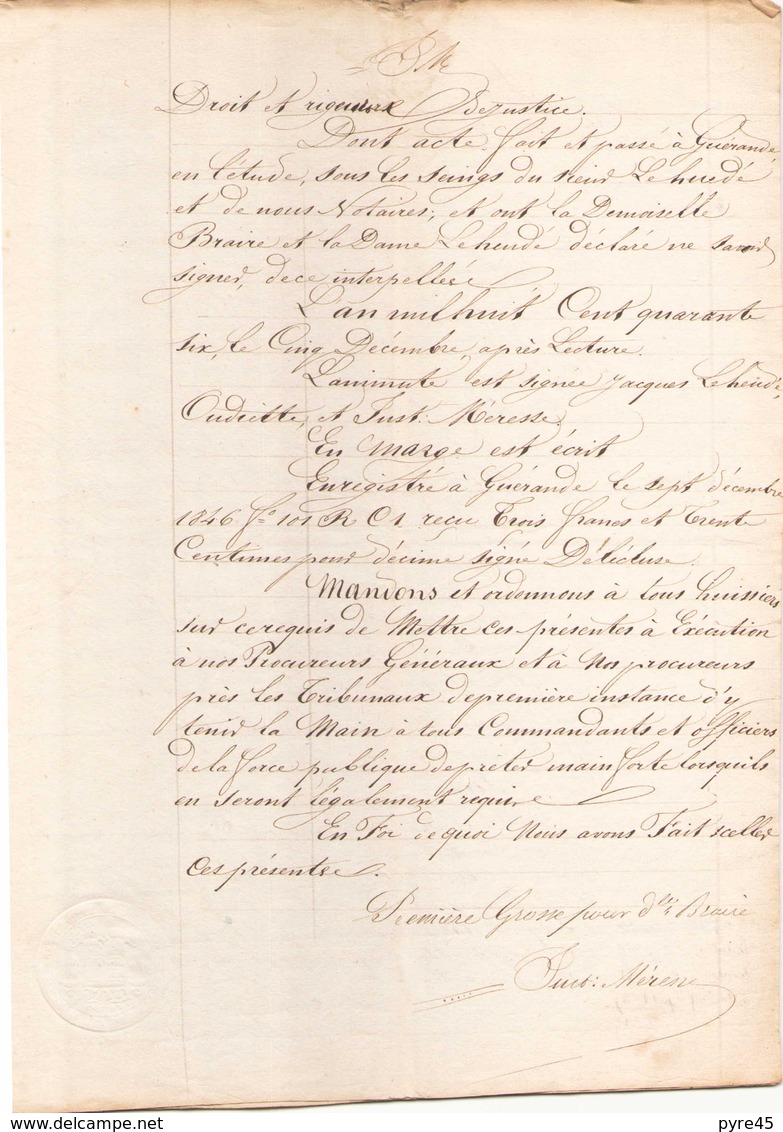 J M
Droit et rigueur de justice.
Dont acte. fait et passé à Guérande,
en l'étude, sous les seings du sieur Lehuedé
et de nous Notaires; et ont la Demoiselle
Braire et la Dame Lehuedé déclaré ne savoir
signer, de ce interpellés
L'an mil huit Cent quarante
six, le Cinq Décembre, après Lecture.
La minute est signée Jacques Lehuedé,
Oudiette, et Just: Méresse.
En Marge est écrit
Enregistré à Guérande le sept décembre
1846 fo 101 R C1 reçu trois francs et trente
Centimes pour décime signé Délécluse.
Mandons et ordonnons à tous huissiers
sur ce requis de Mettre ces présentes à Exécution
à nos Procureurs Généraux et à Nos procureurs
près les Tribunaux de première instance d'y
tenir la Main à tous Commandants et officiers
de la force publique de prêter main forte lorsqu'ils
en seront légalement requis
En Foi de quoi Nous avons Fait sceller
Ces présentes.
Première Grosse pour dlle Braire
Just: Méresse
pyre45